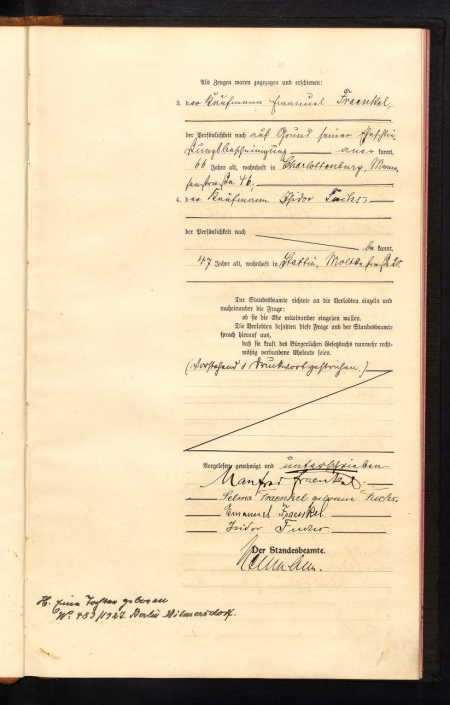 Als Zeugen waren zugezogen und erschienen:
3. der Kaufmann Emanuel Fraenkel,
der Persönlichkeit nach auf Grund seiner
bescheinigung anerkannt,
66 Jahre alt, wohnhaft in Charlottenburg, Momm-
senstraße 46;
4. der Kaufmann Isidor Fuchs
der Persönlichkeit nach
bekannt,
47 Jahre alt, wohnhaft in Stettin, Moltkestraße
Der Standesbeamte richtete an die Verlobten einzeln und
nacheinander die Frage:
ob sie die Ehe miteinander eingehen wollen.
Die Verlobten bejahten diese Frage und der Standesbeamte
sprach hierauf aus,
daß sie kraft des Bürgerlichen Gesetzbuchs nunmehr recht-
mäßig verbundene Eheleute seien.
(Vorstehend 1 Druckwort gestrichen.)
Vorgelesen, genehmigt und unterschrieben
Manfred Fraenkel.
Selma Fraenkel geborene Fuchs.
Emanuel Fraenkel
Isidor Fuchs
Der Standesbeamte.
H. Eine Tochter geboren
Nr. 483/1927 Berlin Wilmersdorf.